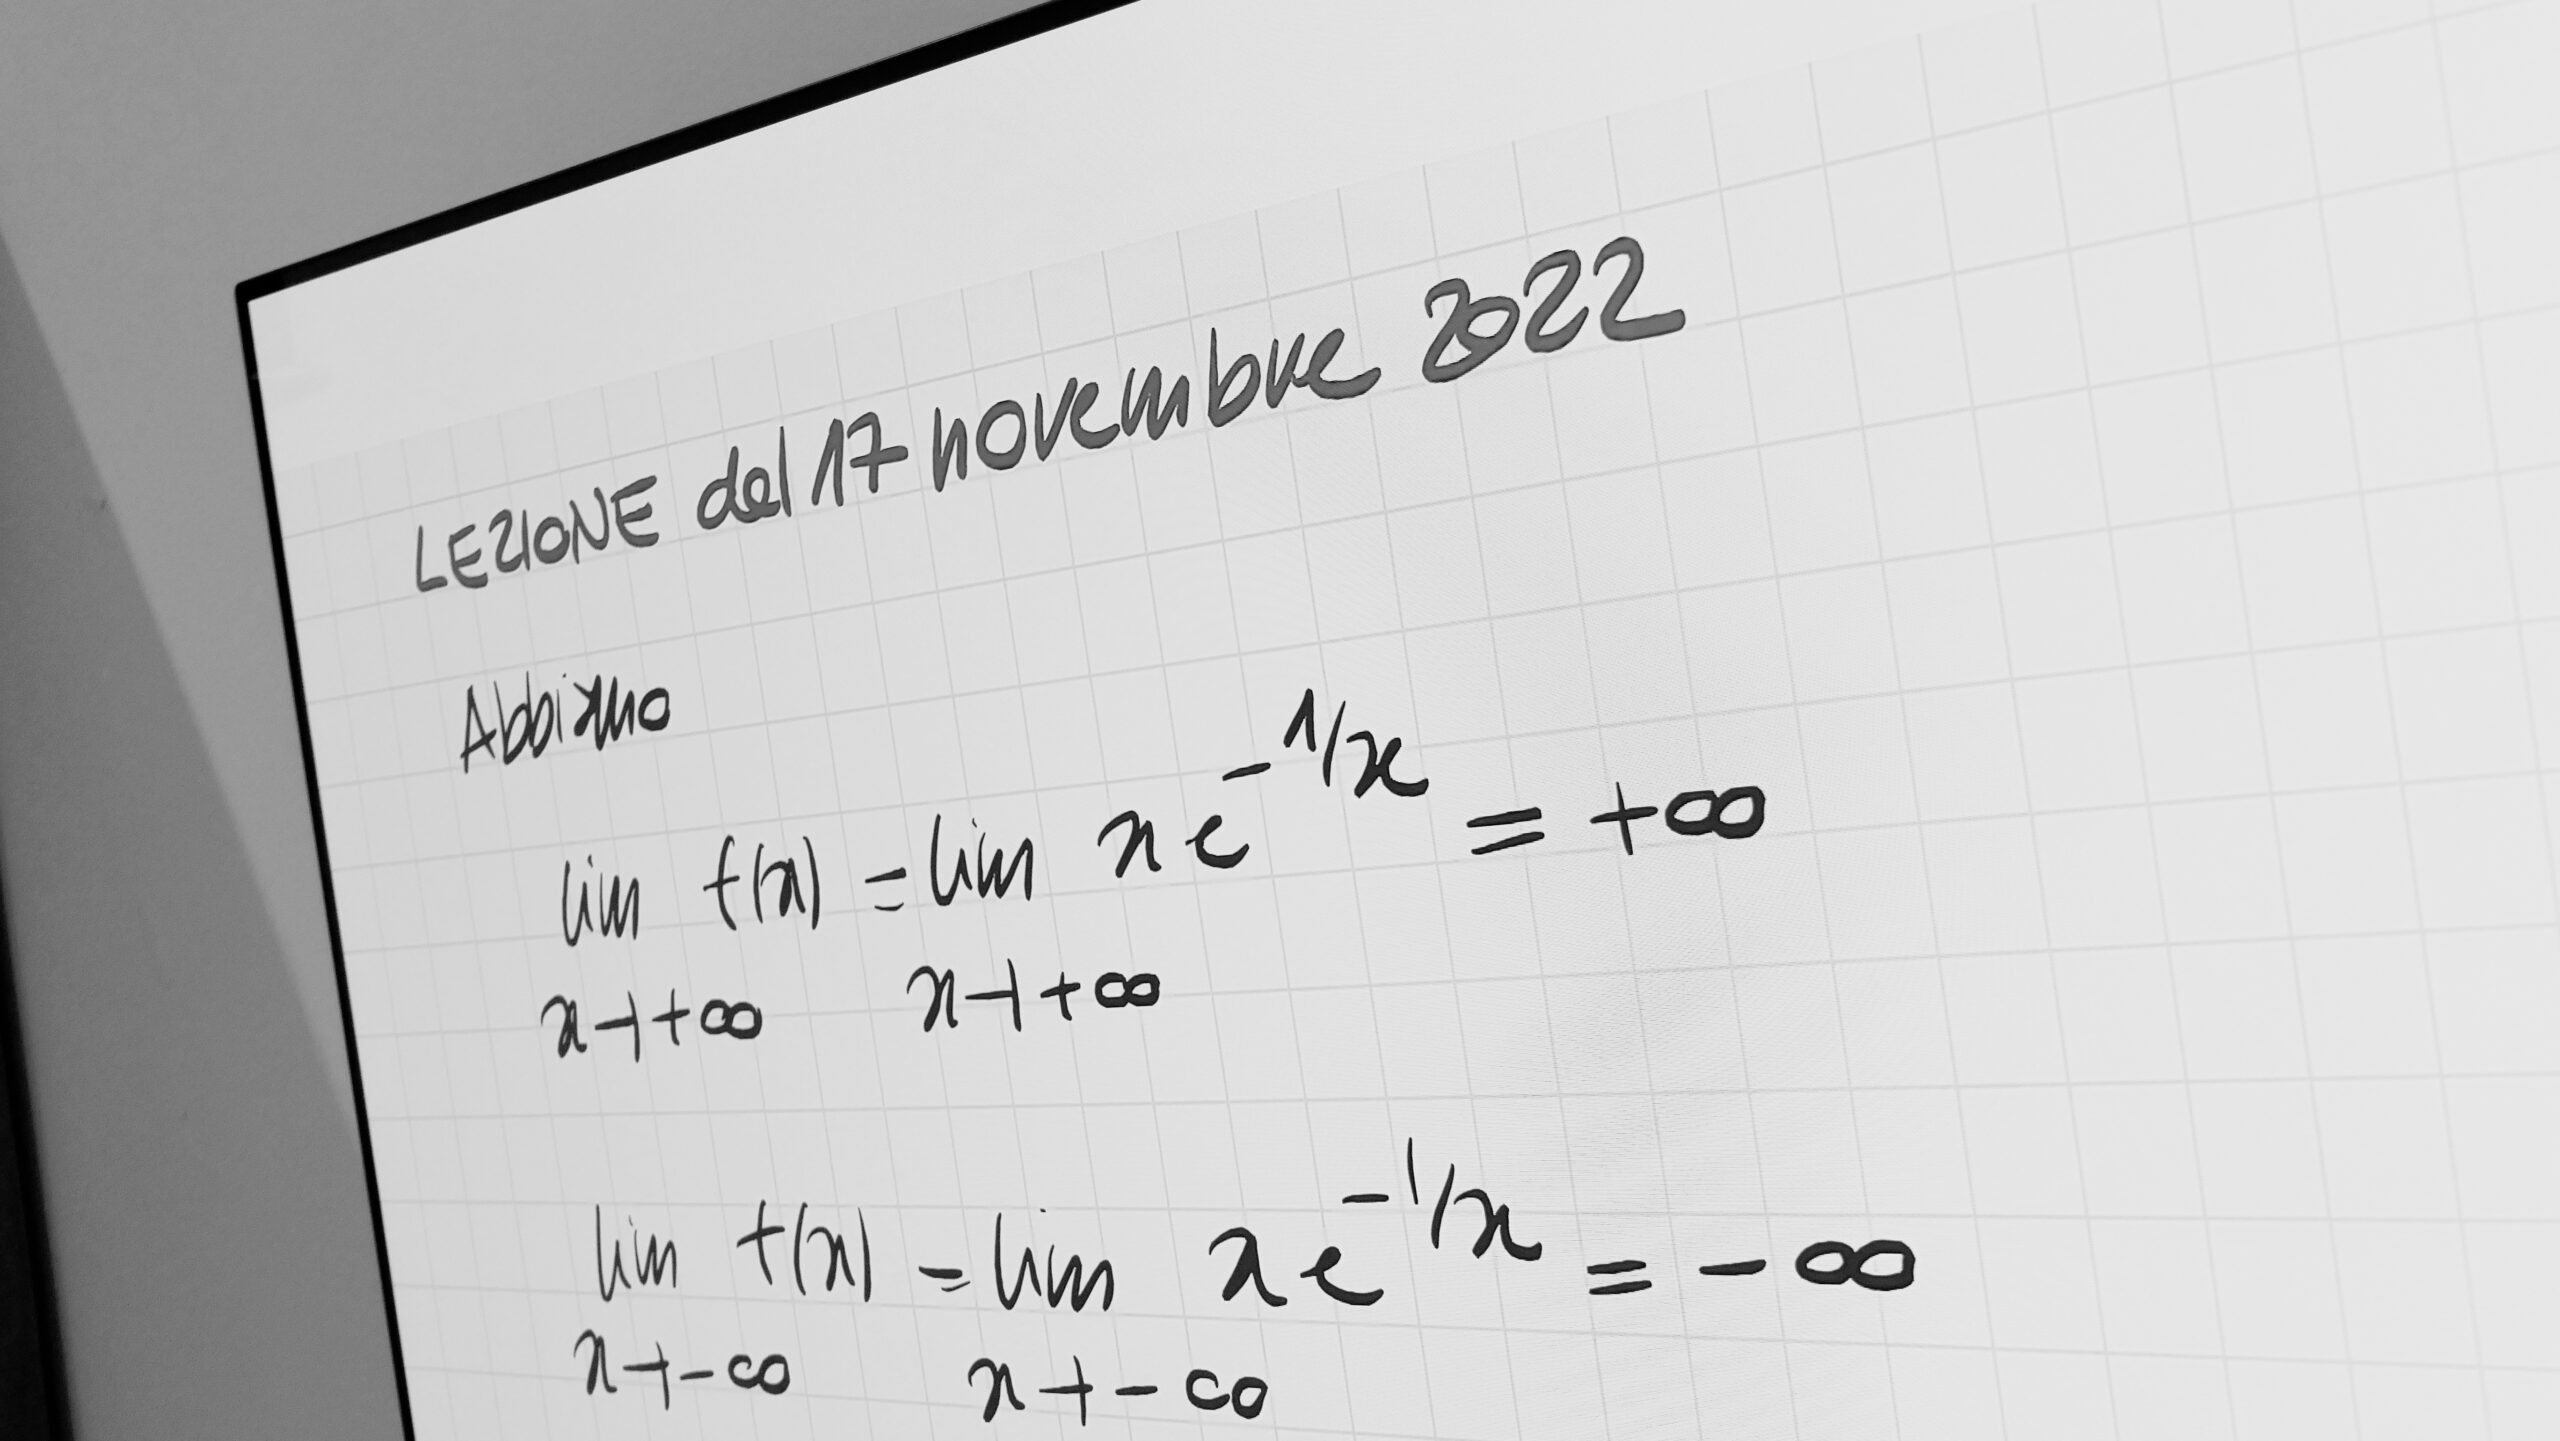 LEZIONE del 17 novembre 2022
Abbiamo
lim f(x) = lim x e^{-1/x} = +∞
x→+∞ x→+∞
lim f(x) = lim x e^{-1/x} = -∞
x→-∞ x→-∞